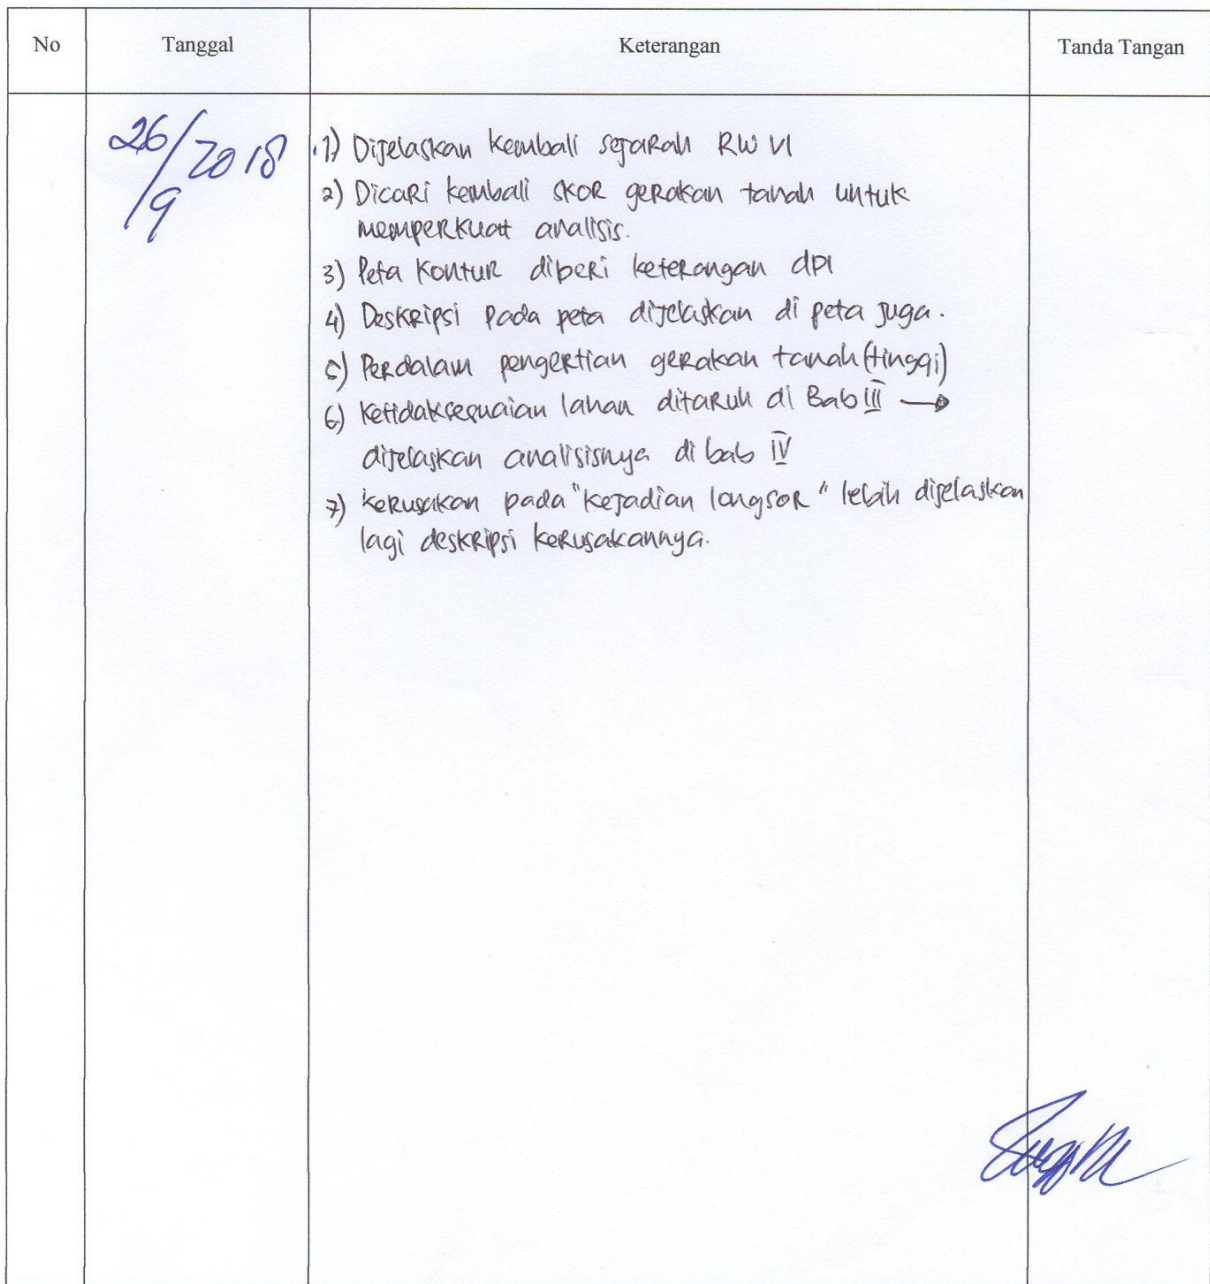 No Tanggal Keterangan Tanda Tangan
26/9 2018
1) Dijelaskan kembali sejarah RW VI
2) Dicari kembali skor gerakan tanah untuk
memperkuat analisis.
3) Peta Kontur diberi keterangan dpl
4) Deskripsi pada peta dijelaskan di peta juga.
5) Perdalam pengertian gerakan tanah (tinggi)
6) Ketidaksesuaian lahan ditaruh di Bab III →
dijelaskan analisisnya di bab IV
7) Kerusakan pada "Kejadian longsor" lebih dijelaskan
lagi deskripsi kerusakannya.